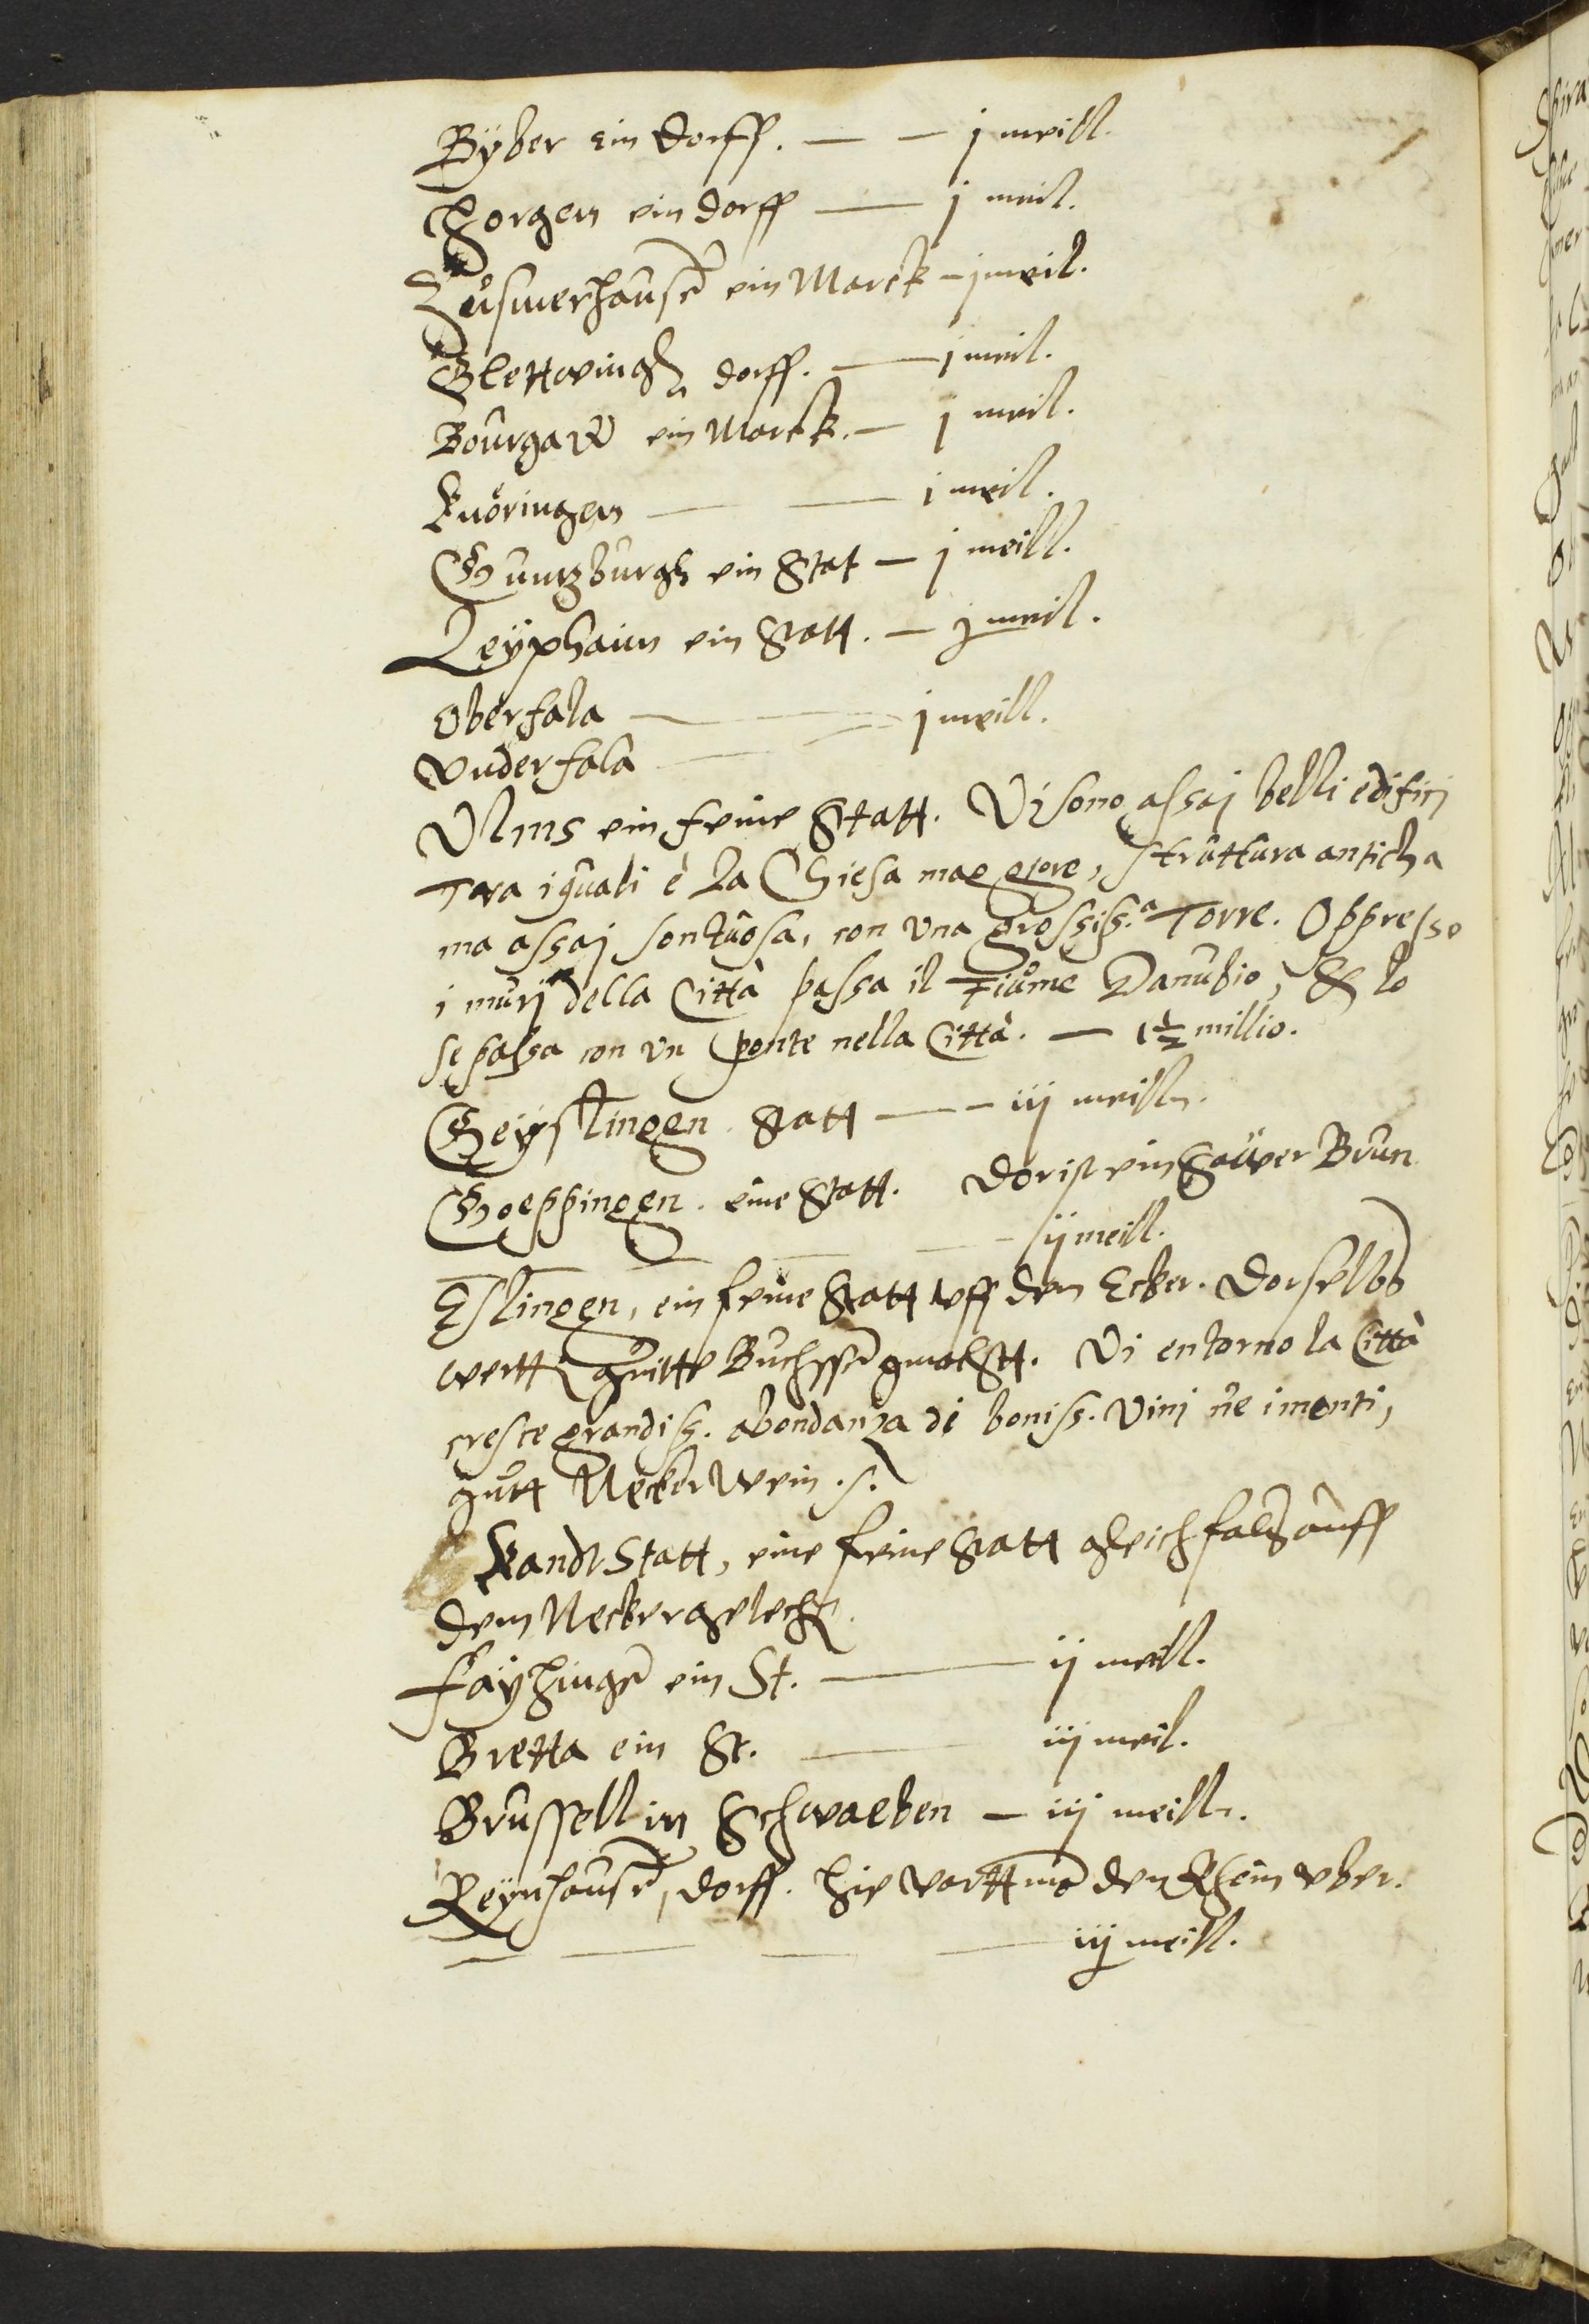 Byber ein dorff. — — j meill.
Horgen ein dorff — j meil.
Zusmerhausē ein Marck — j meil.
Glettwingh dorff. — j meil.
Bourgaw ein Marck. — j meil.
Knöringen — — j meil.
Guntzburgh ein Stat — j meill.
Leyphaim ein Statt. — j meil.
Oberfala — — j meill.
Vnderfala —
Vlms ein feine Statt. Vi sono assaj belli edifitij
Tra i quali è la Chiesa maggiore, struttura anticha
ma assaj sontuosa, con una grossiss.ᵃ Torre. Oppresso
i murj della Città passa il Fiume Danubio, & lo
se passa con un ponte nella Città. — 1½ millio.
Geyslingen Statt — — iij meill.
Goeppingen. eine Statt. Dor ist ein Sauwer Brun
— — — ij meill.
Eslingen, ein feine Statt vff den Ecker. Dorselbs
wertt gutte Buchssē gmachtt. Vi entorno la Città
cresce grandiss. abondanza di boniss. vinj ne i monti,
gutt Necker Wein.
Kandtstatt, eine feine Statt gleichfals auff
dem Necker gelech.
Fayhingē ein St. — ij meill.
Bretta ein St. — iij meil.
Brussell in Schwaeben — iij meill.
Reynhausē, dorff. hie vartt mā den Rhein vber.
— — — — iij meill.